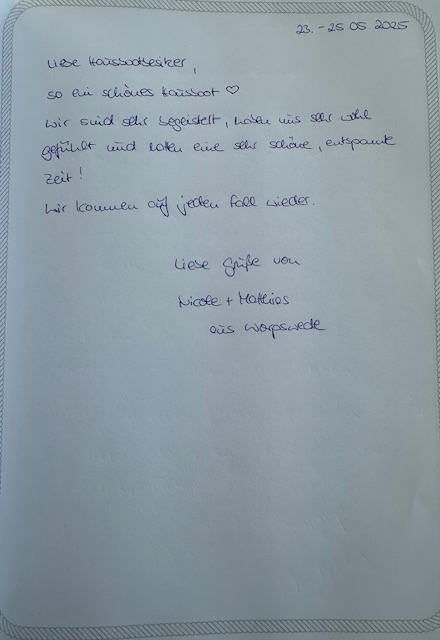 23. - 25.05.2025
Liebe Hausbootbesitzer,
so ein schönes Hausboot ♡
Wir sind sehr begeistert, haben uns sehr wohl
gefühlt und hatten eine sehr schöne, entspannte
Zeit!
Wir kommen auf jeden Fall wieder.
Liebe Grüße von
Nicole + Matthias
aus Worpswede